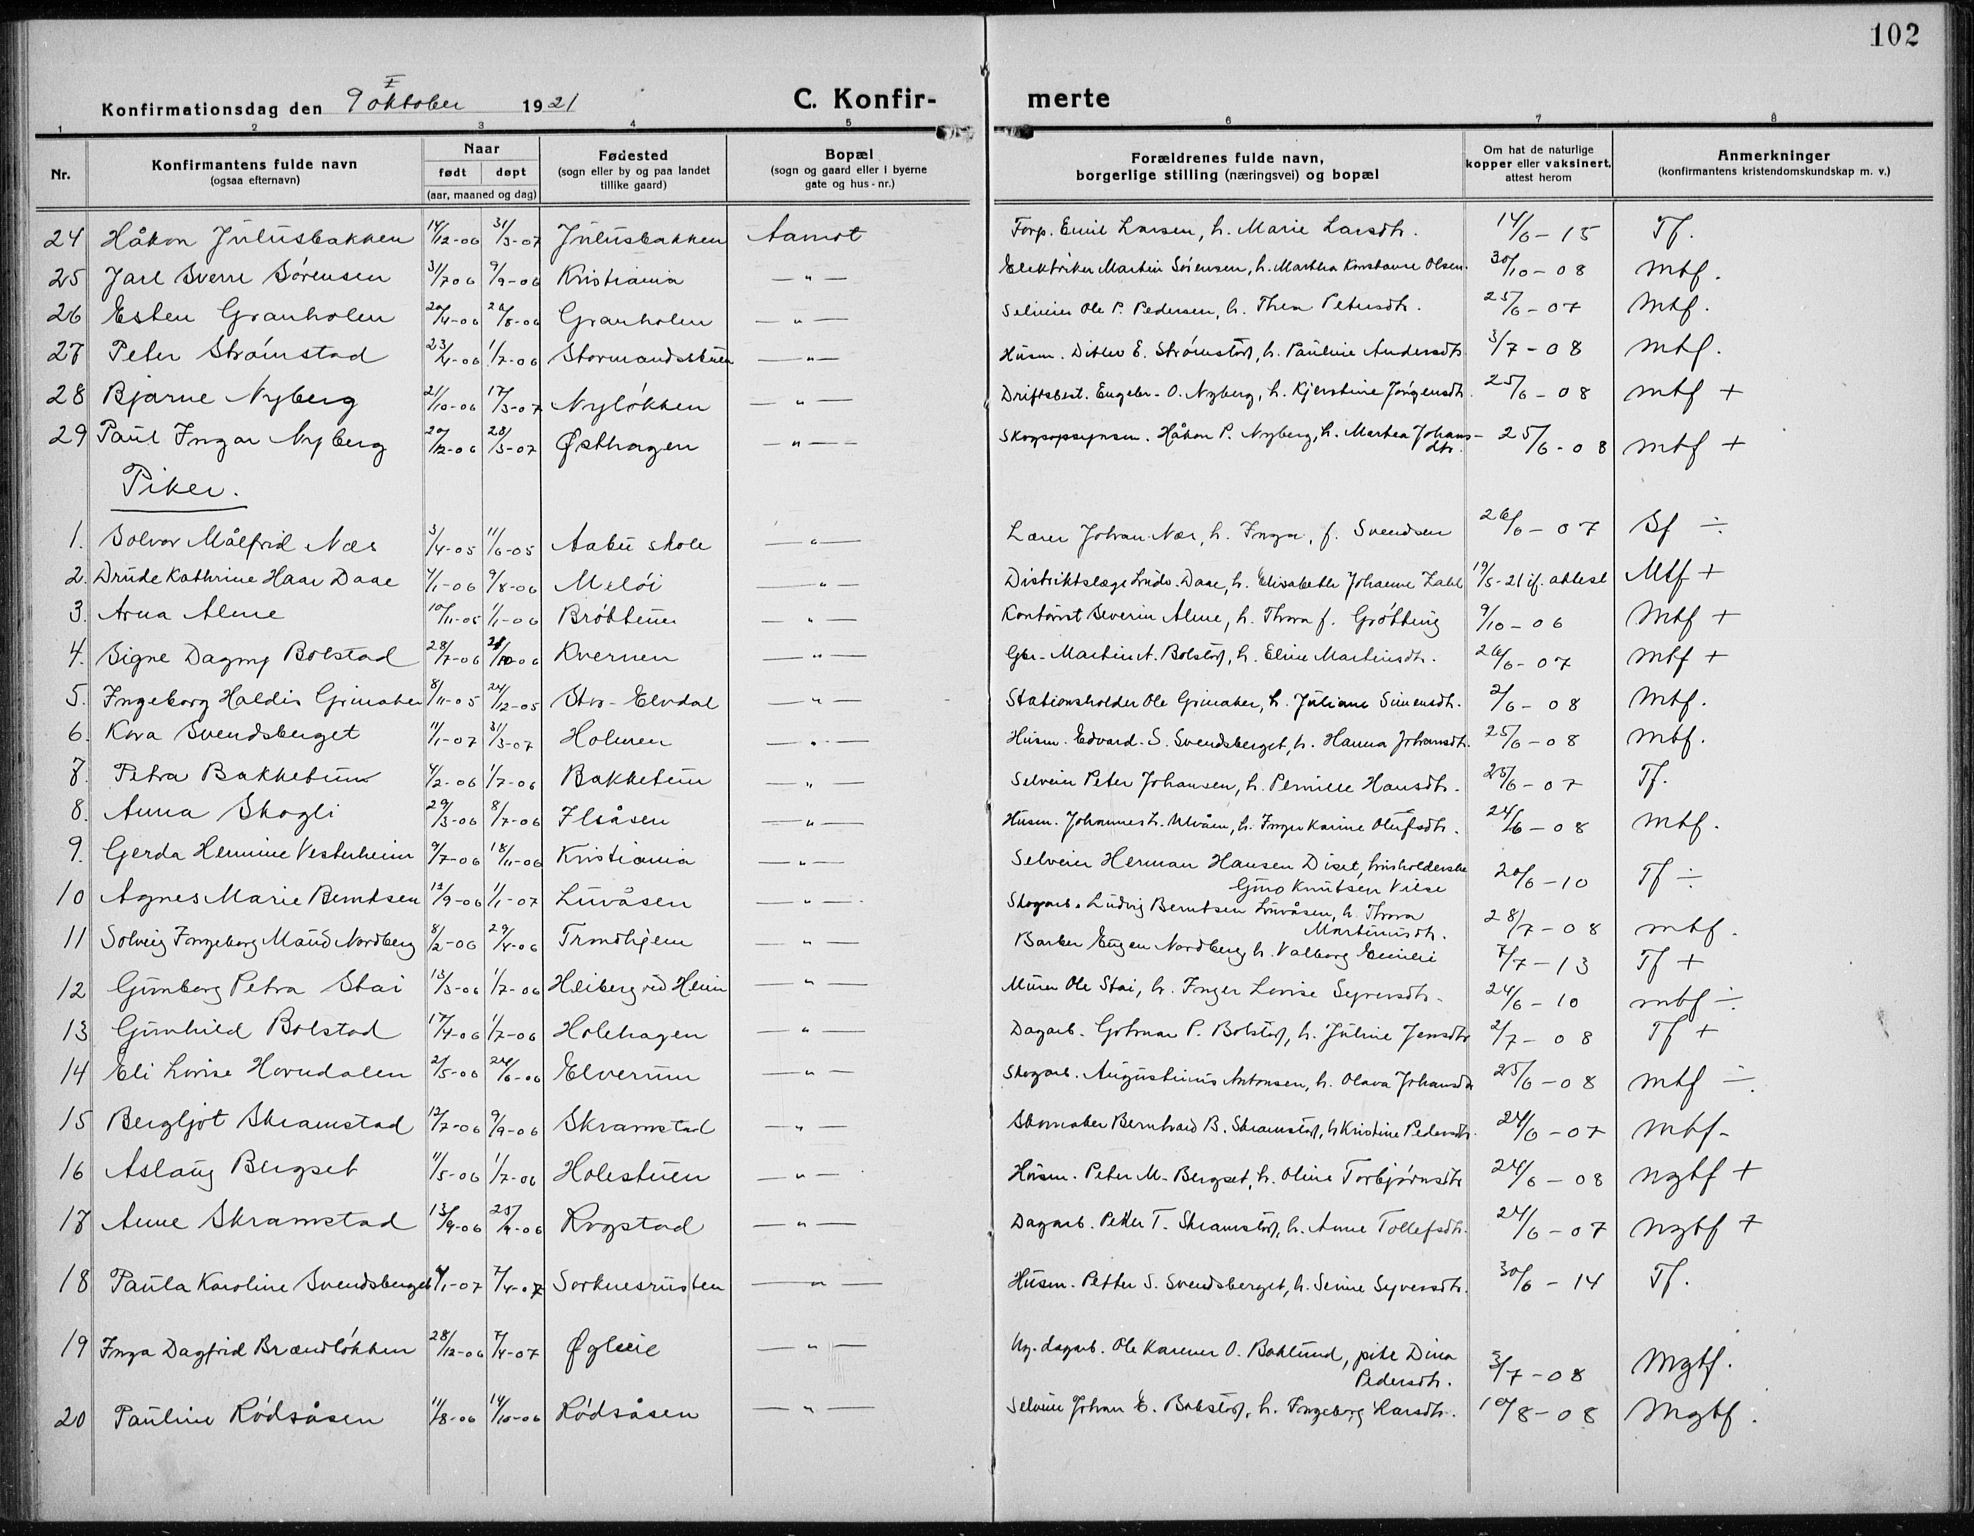 102
Konfirmationsdag den 9 oktober I 1921 C. Konfir- merte
1 2 3 4 5 6 7 8
Nr. Konfirmantens fulde navn (ogsaa efternavn) Naar født døpt (aar, maaned og dag) Fødested (sogn eller by og paa landet tillike gaard) Bopæl (sogn og gaard eller i byerne gate og hus-nr.) Forældrenes fulde navn, borgerlige stilling (næringsvei) og bopæl Om hat de naturlige kopper eller vaksinert, attest herom Anmerkninger (konfirmantens kristendomskundskap m. v.)
24 Håkon Julusbakken 14/12-06 31/3-07 Julusbakken Aamot Forp. Emil Larsen, h. Marie Larsdtr. 14/6-15 Tf.
25 Jarl Sverre Sørensen 31/7 06 9/9-06 Kristiania —"— Elektriker Martin Sørensen, h. Martha Konstance Olsen. 30/10-08 mtf.
26 Esten Granholen 20/4-06 26/8-06 Granholen —"— Selveier Ole P. Pedersen, h. Thea Petersdtr. 25/6-07 mtf.
27 Peter Strømstad 23/4-06 1/7-06 —"— Husm. Ditlev E. Strømstad, h. Pauline Andersdtr. 3/7-08 mtf.
28 Bjarne Nyberg 21/10-06 17/3-07 Nyløkken —"— Driftsbest. Engebr. O. Nyberg, h. Kjerstine Jørgensdtr. 25/6-08 mtf +
29 Paul Ingar Nyberg 20/12-06 28/3-07 Østhagen —"— Skogsopsynsm. Håkon P. Nyberg, h. Marthea Johans-
dtr. 25/6-08 mtf +
Piker.
1. Solvor Målfrid Næs 3/4-05 11/6-05 Aabu skole —"— Lærer Johan Næs, h. Inga, f. Svendsen 26/6-07 Sf ÷
2. Drude Kathrine Haar Daae 4/1-06 9/8-06 Meløi —"— Distriktslæge Ludv. Daae, h. Elisabeth Johanne Zahl 19/5-21 if. attest Mtf +
3. Arna Alme 10/11-05 1/1-06 Bröttum —"— Kontorist Severin Alme, h. Thora f. Grøtting 9/10-06 Mtf +
4. Signe Dagny Bolstad 28/7-06 Kvernen —"— Gbr. Martin A. Bolstad, h. Eline Martinsdtr. 26/6-07 mtf +
5. Ingeborg Haldis Grinaker 8/11-05 24/12-05 Stor-Elvdal —"— Stationsholder Ole Grinaker, h. Juliane Simensdtr. 2/6-08 Mtf.
6. Kora Svendsberget 11/1-07 31/3-07 Holmen —"— Husm. Edvard S. Svendsberget, h. Hanna Johansdtr. 25/6-08 mtf.
7. Petra Bakketun 4/2-06 1/7-06 Bakketun —"— Selveier Peter Johansen, h. Pernille Hansdtr. 25/6-07 Tf.
8. Anna Skogli 29/3-06 8/7-06 Ilsåsen —"— Husm. Johannes L. Ulvåen, h. Inger Karine Olufsdtr. 24/6-08 mtf.
9. Gerda Hermine Vesterheim 9/7-06 18/11-06 Kristiania —"— Selveier Herman Hansen Diset, husholderske
Guro Knutsen Vilse 20/6-10 Tf ÷
10 Agnes Marie Berntsen 12/9-06 1/1-07 Luvåsen —"— Skogarb. Ludvig Berntsen Luvåsen, h. Thora
Martinusdtr. 28/7-08 mtf.
11 Solveig Ingeborg Maud Nordberg 8/2-06 29/4-06 Trondhjem —"— Barber Eugen Nordberg, h. Valborg Emilie 7/7-13 Tf +
12 Gunborg Petra Stai 13/3-06 1/7-06 —"— Murer Ole Stai, h. Inger Lovise Syversdtr. 24/6-10 mtf ÷
13 Gunhild Bolstad 17/4-06 1/7-06 Holehagen —"— Dagarb. Gotmar P. Bolstad, h. Juline Jensdtr 2/7-08 Tf +
14 Eli Lovise Hovndalen 2/5-06 24/6-06 Elverum —"— Skogarb. Augustinus Antonsen, h. Olava Johansdtr 25/6-08 mtf ÷
15 Bergljot Skramstad 12/7-06 9/9-06 Skramstad —"— Skomaker Bernhard B. Skramstad, h Kristine Pedersdtr. 24/6-07 mtf.
16 Aslaug Bergset 11/5-06 1/7-06 Holestuen —"— Husm. Peter M. Bergset, h. Oline Torbjørnsdtr 24/6-08 ngtf +
17 Anne Skramstad 13/9-06 23/9-06 Rogstad —"— Dagarb. Petter T. Skramstad, h. Anne Tollefsdtr. 24/6-07 ngtf +
18 Paula Karoline Svendsberget 4/1-07 7/4-07 Sorknesrusten —"— Husm. Petter S. Svendsberget, h. Semine Syversdtr. 30/6-14 Tf.
19 Inga Dagfrid Brændløkken 28/12-06 7/4-07 Øgleie —"— Ug. dagarb. Ole Karener O. Baklund, pike Dina
Pedersdtr. 3/7-08 Mgtf.
20 Pauline Rødsåsen 11/8-06 14/10-06 Rødsåsen —"— Selveier Johan E. Bolstad, h. Ingeborg Larsdtr. 10/8-08 Mgtf.